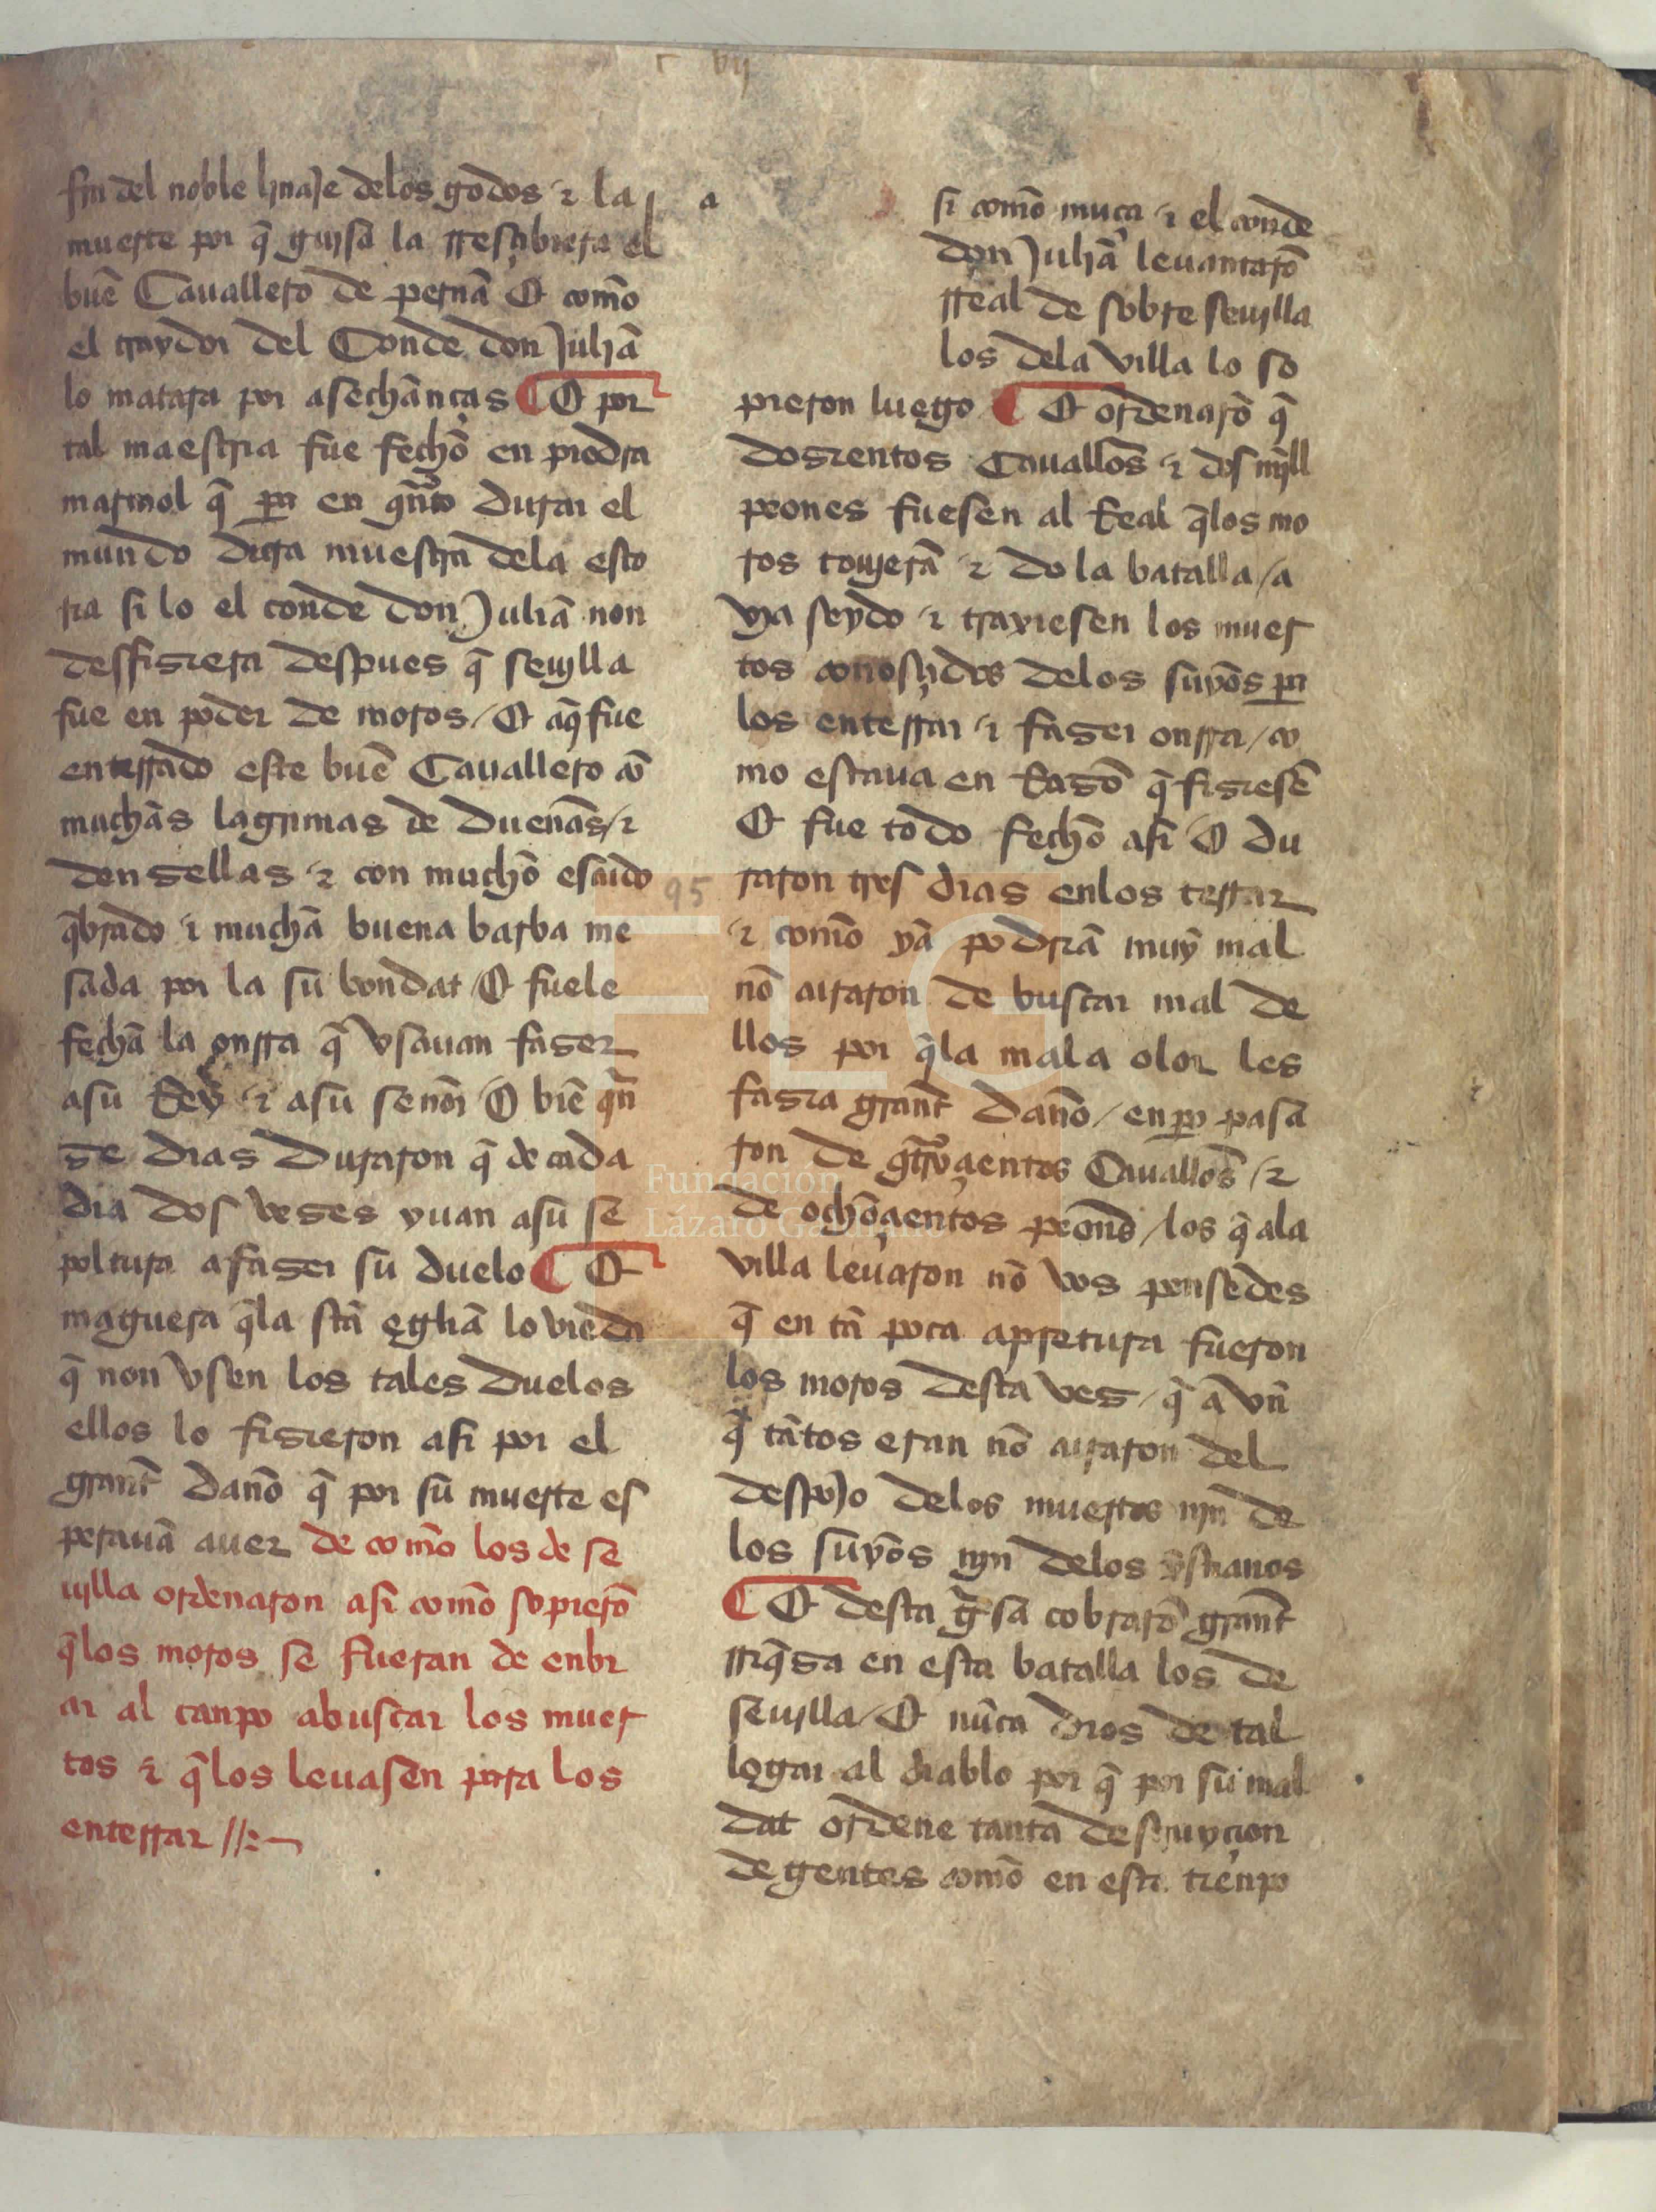 fin del noble linaje delos godos ⁊ la
muerte por q̄ guisa la rresçibiera el
buē Cauallero de pernā Et comō
el traydor del Conde don Juliā
lo matara por asechānças ¶ Et por
tal maestria fue fechō en piedra
marmol q̄ pa en qnto durar el
mundo dira muestra dela esto
ria si lo el conde don Juliā non
desfiziera despues q̄ seuilla
fue en poder de moros / Et aq̄ fue
enterrado este buē Cauallero cō
muchās lagrimas de duenās / ⁊
donzellas ⁊ con muchō escudo
q̄brado ⁊ muchā buena barba me
sada por la sū bondat / Et fuele
fechā la onrra q̄ vsauan fazer
asu Rey ⁊ asu señor / Et biē qn
ze dias duraron q̄ de cada
dia dos vezes yuan asu se
poltura afazer su duelo ¶ Et
maguera q̄la stā eglīa lo vieda
q̄ non vsen los tales duelos
ellos lo fizieron asi por el
grant̄ danō q̄ por sū muerte es
perauā auer de comō los de se
uilla ordenaron asi comō sopierō
q̄los moros se fueran de enbi
ar al canpo abuscar los muer
tos ⁊ q̄los leuasen para los
enterrar //:~
a si comō muça ⁊ el conde
don Juliā leuantarō
rreal de sobre seuilla
los dela villa lo so
pieron luego ¶ Et ordenarō q̄
dozientos Cauallōs ⁊ dos mjll
peones fuesen al Real q̄los mo
ros touierā ⁊ do la batalla / a
uja seydo ⁊ traxiesen los muer
tos conosçidos delos suyōs pa
los enterrar ⁊ fazer onrra / co
mo estaua en Razō q̄ fiziesē
Et fue todo fechō asi / Et du
raron tres dias enlos terrar
⁊ comō yā podriā muy mal
nō curaron de buscar mal de
llos por q̄la mala olor les
fazia grant̄ danō / enpo pasa
ron de qtroçientos Cauallōs / ⁊
de ochōçientos peonēs / los q̄ ala
villa leuaron nō vos pensedes
q̄ en tā poca apretura fueron
los moros desta vez / q̄ a vn̄
q̄ tātos eran nō curaron del
despojo delos muertos njn de
los suyōs njn delos estranos
¶ Et desta gsa cobrarō grant̄
rriq̄za en esta batalla los de
seuilla / Et nūca dios de tal
logar al diablo por q̄ por sū mal
dat ordene tanta destruyçion
de gentes comō en este tienpo
95
FLG
Fundación
Lázaro Galdiano